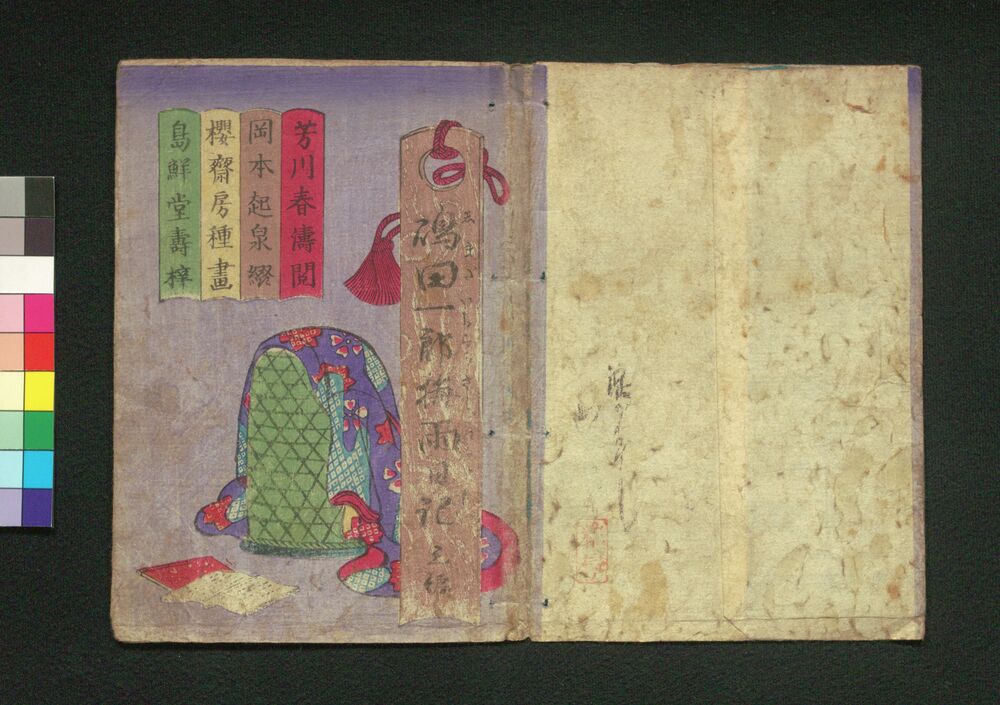 芳川春濤閲
岡本起泉綴
櫻齋房種畫
島鮮堂壽梓
嶋田一郎梅雨日記 三編